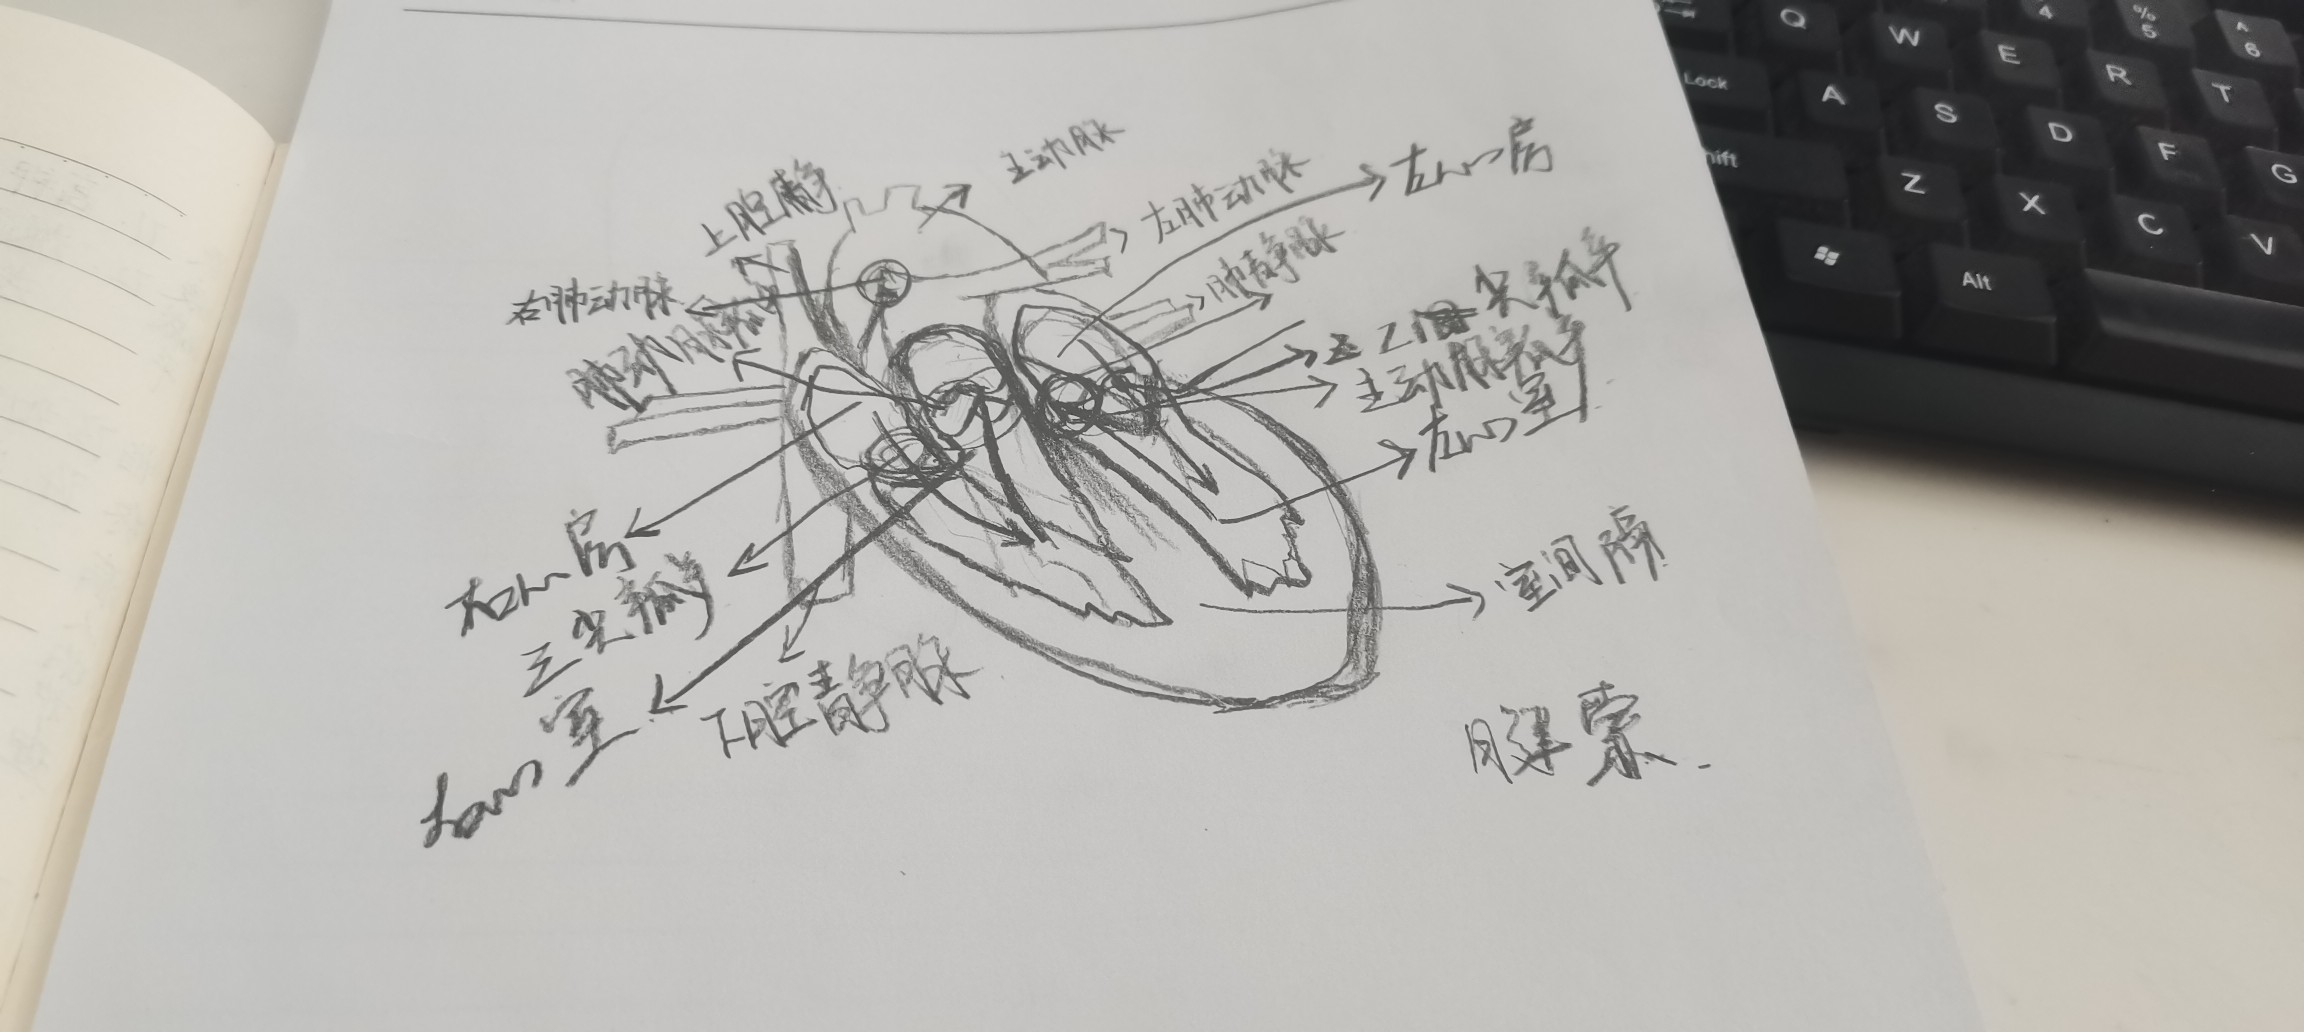 主动脉
上腔静
左肺动脉
左心房
右肺动脉
肺静脉
肺动脉瓣
二尖瓣
主动脉瓣
左心室
右心房
三尖瓣
室间隔
右心室
下腔静脉
腱索.
Q W E R T
4 % 5 ^ 6
Lock A S D F G
Shift Z X C V
Alt